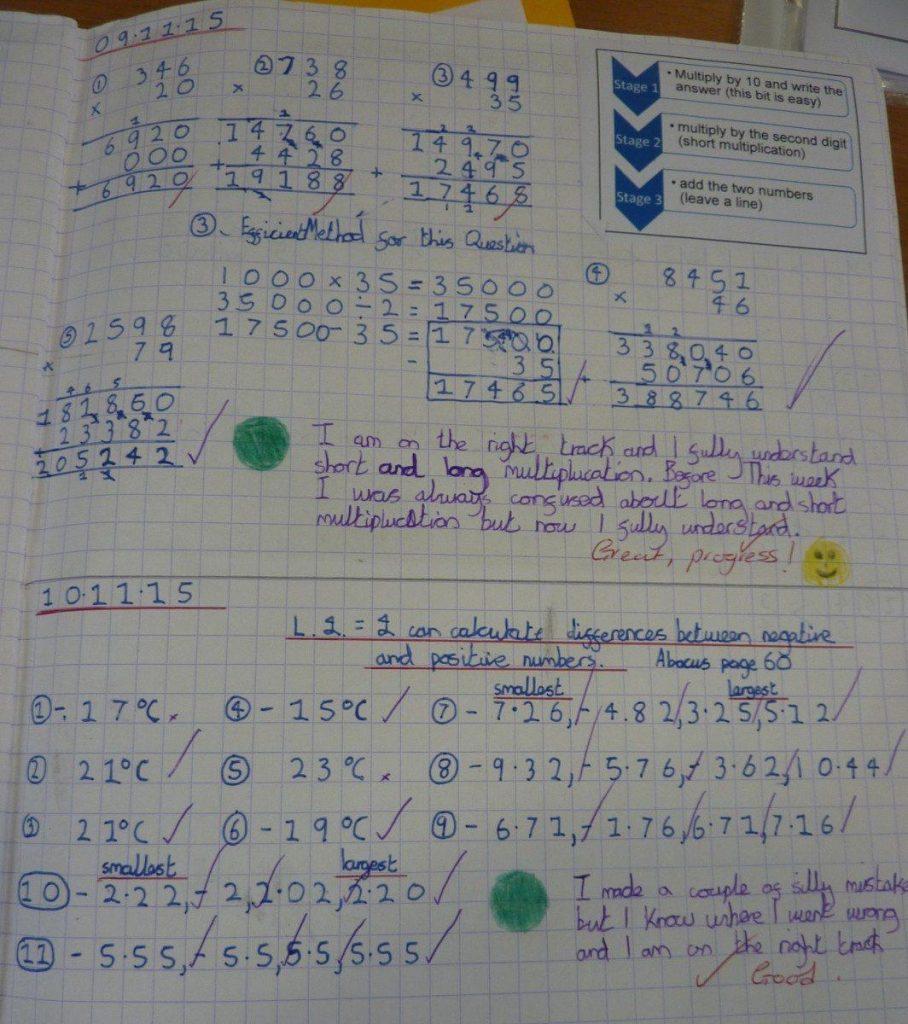 09.11.15
① 346
× 20
6920
000
+ 6920
② 738
× 26
14760
+ 4428
19188
③ 499
× 35
14970
+ 2495
17465
Stage 1
• Multiply by 10 and write the
answer (this bit is easy)
Stage 2
• multiply by the second digit
(short multiplication)
Stage 3
• add the two numbers
(leave a line)
③. Efficient Method for this Question
1000 × 35 = 35000
35000 ÷ 2 = 17500
17500 - 35 = 17500
- 35
17465
④ 8451
× 46
338040
+ 50706
388746
⑤ 2598
× 79
181860
+ 23382
205242
I am on the right track and I fully understand
short and long multiplucation. Before This week
I was always confused about long and short
multiplucation but now I fully understand.
Great, progress!
10.11.15
L.I. = I can calculate differences between negative
and positive numbers. Abacus page 60
① -17°C ④ -15°C ⑦ smallest largest
-7.26, -4.82, 3.25, 5.12
② 21°C ⑤ 23°C ⑧ -9.32, -5.76, -3.62, 10.44
③ 21°C ⑥ -19°C ⑨ -6.71, -1.76, 6.71, 7.16
smallest largest
⑩ -2.22, -2, 2.02, 2.20
⑪ -5.55, -5.5, 5.5, 5.55
I made a couple of silly mistake
but I know where I went wrong
and I am on the right track
Good.